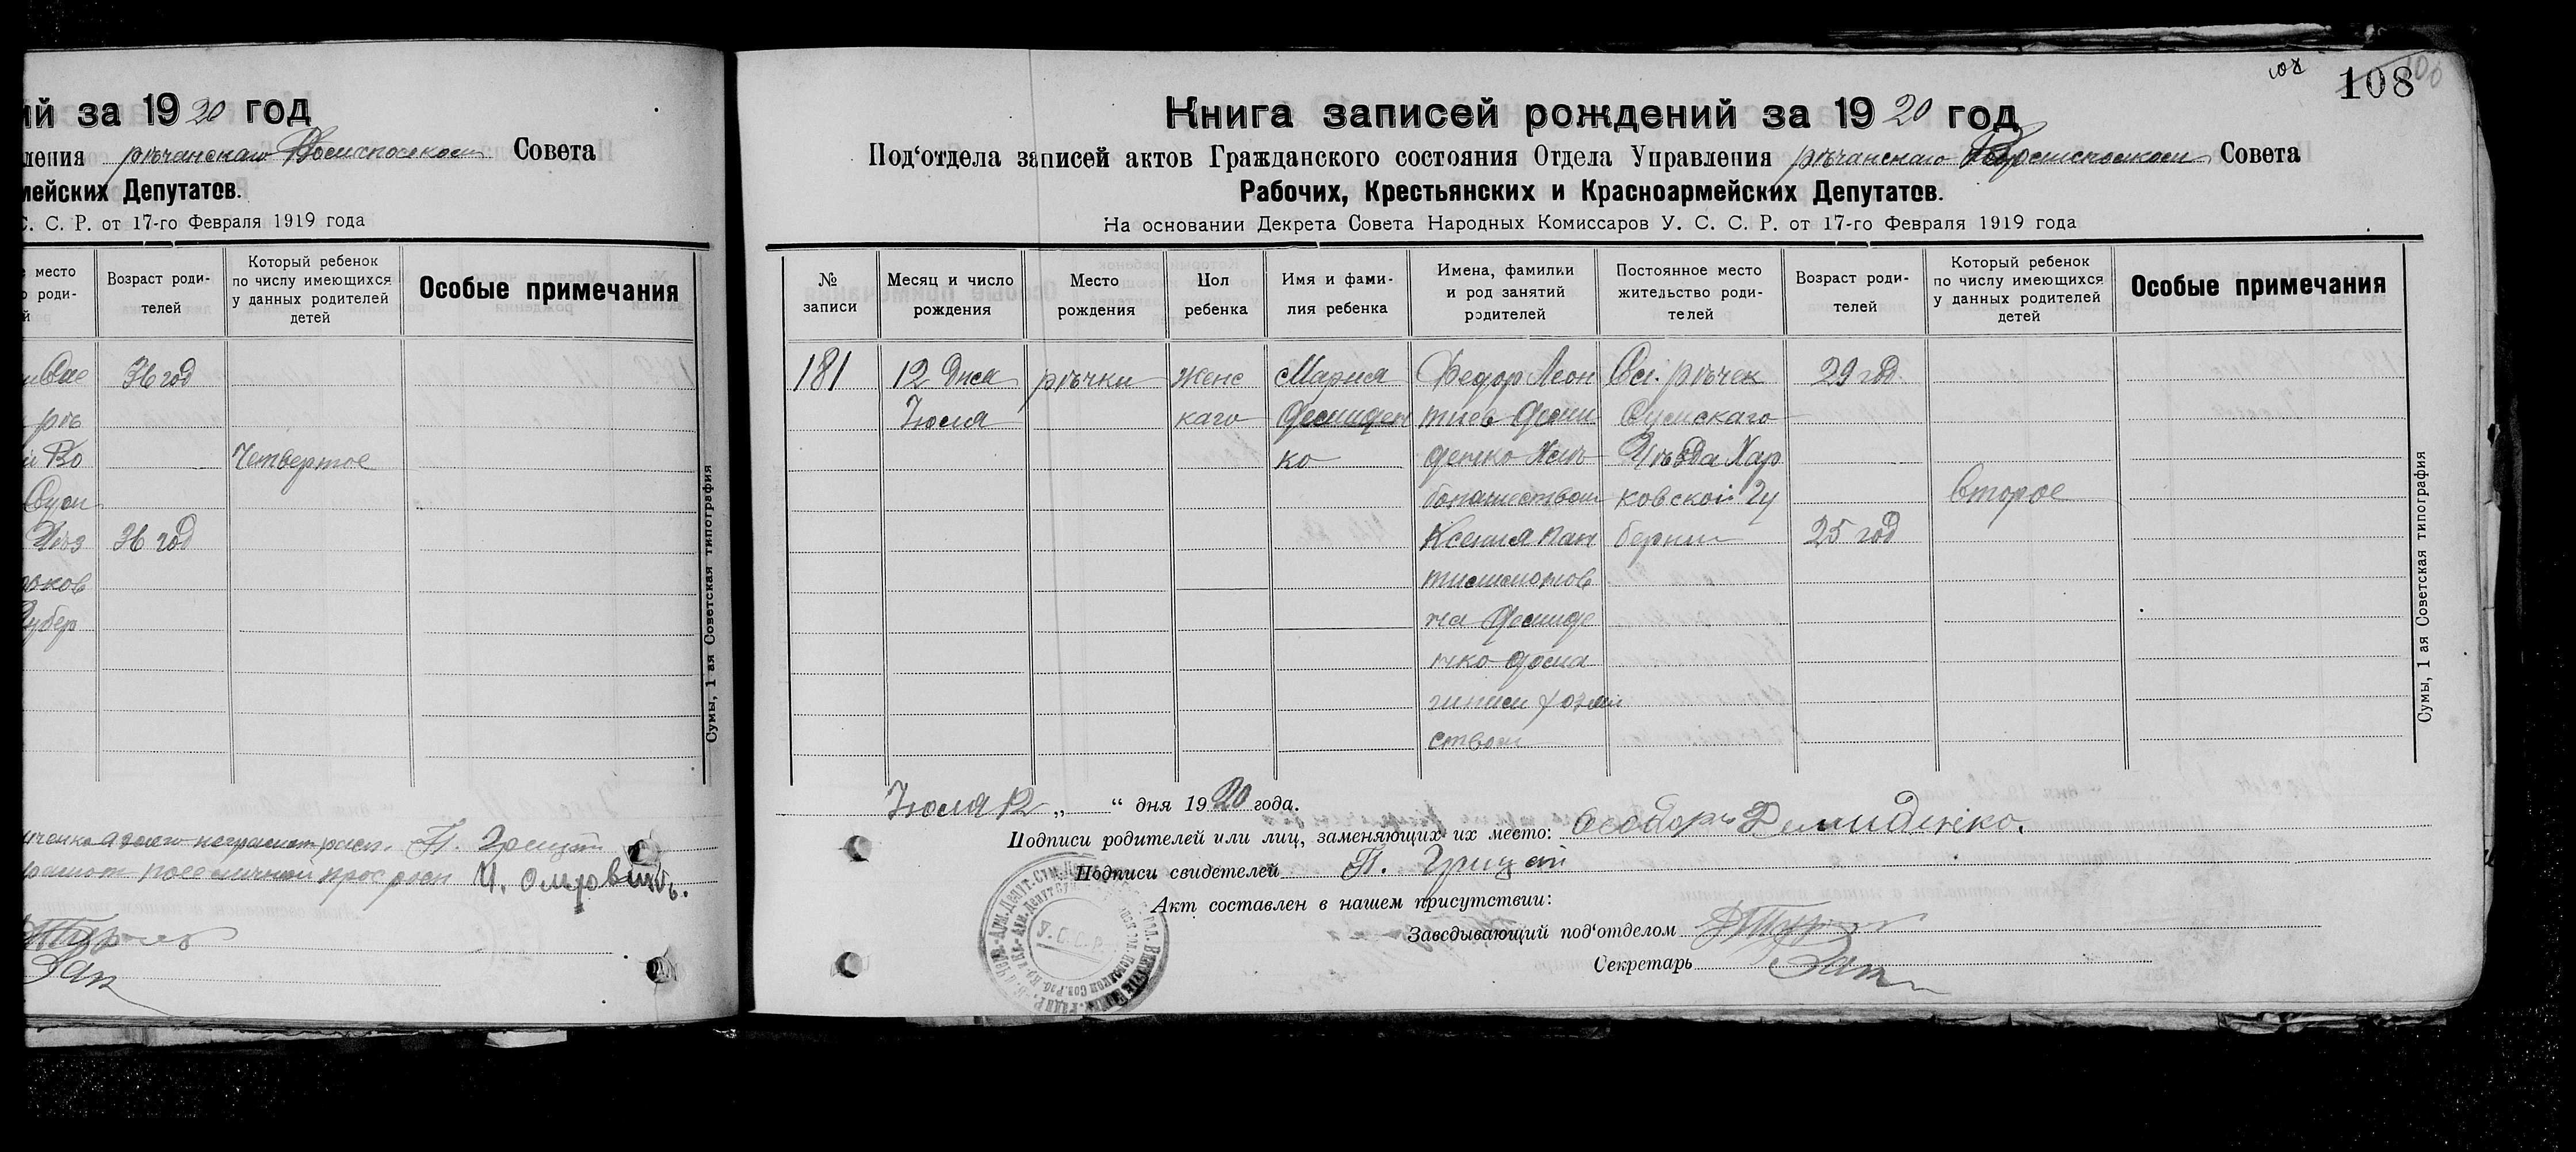 ий за 1920 год
ления рѣчанскаго Волисполкома Совета
мейских Депутатов.
С. С. Р. от 17-го Февраля 1919 года
е место
о роди-
й
Возраст роди-
телей
Который ребенок
по числу имеющихся
у данных родителей
детей
Особые примечания
36 год
рѣ
Во
Четвертое
Сум
36 год
рьков
Губер
Сумы, 1 ая Советская типография
Грицай
108
108
Книга записей рождений за 1920 год
Под‘отдела записей актов Гражданского состояния Отдела Управления рѣчанскаго Волисполкома Совета
Рабочих, Крестьянских и Красноармейских Депутатов.
На основании Декрета Совета Народных Комиссаров У. С. С. Р. от 17-го Февраля 1919 года
№
записи
Месяц и число
рождения
Место
рождения
Пол
ребенка
Имя и фами-
лия ребенка
Имена, фамилии
и род занятий
родителей
Постоянное место
жительство роди-
телей
Возраст роди-
телей
Который ребенок
по числу имеющихся
у данных родителей
детей
Особые примечания
181
12 Дня
Июля
рѣчки
Женс
каго
Мария
Демиден
ко
Федор Леон
тиев Деми
денко Хлѣ
бопашеством
Ксения Пан
тилимонов
на Демиде
нко дома
шним хозяй
ством
Сл. рѣчек
Сумскаго
Уѣзда Хар
ковской Гу
бернии
29 год
25 год
второе
Сумы, 1 ая Советская типография
Июля 12 „ “ дня 1920 года.
Подписи родителей или лиц, заменяющих их место: Ѳеодоръ Демиденко.
Подписи свидетелей П. Грицай
Акт составлен в нашем присутствии:
Заведывающий под‘отделом
Секретарь
У. С. С. Р.